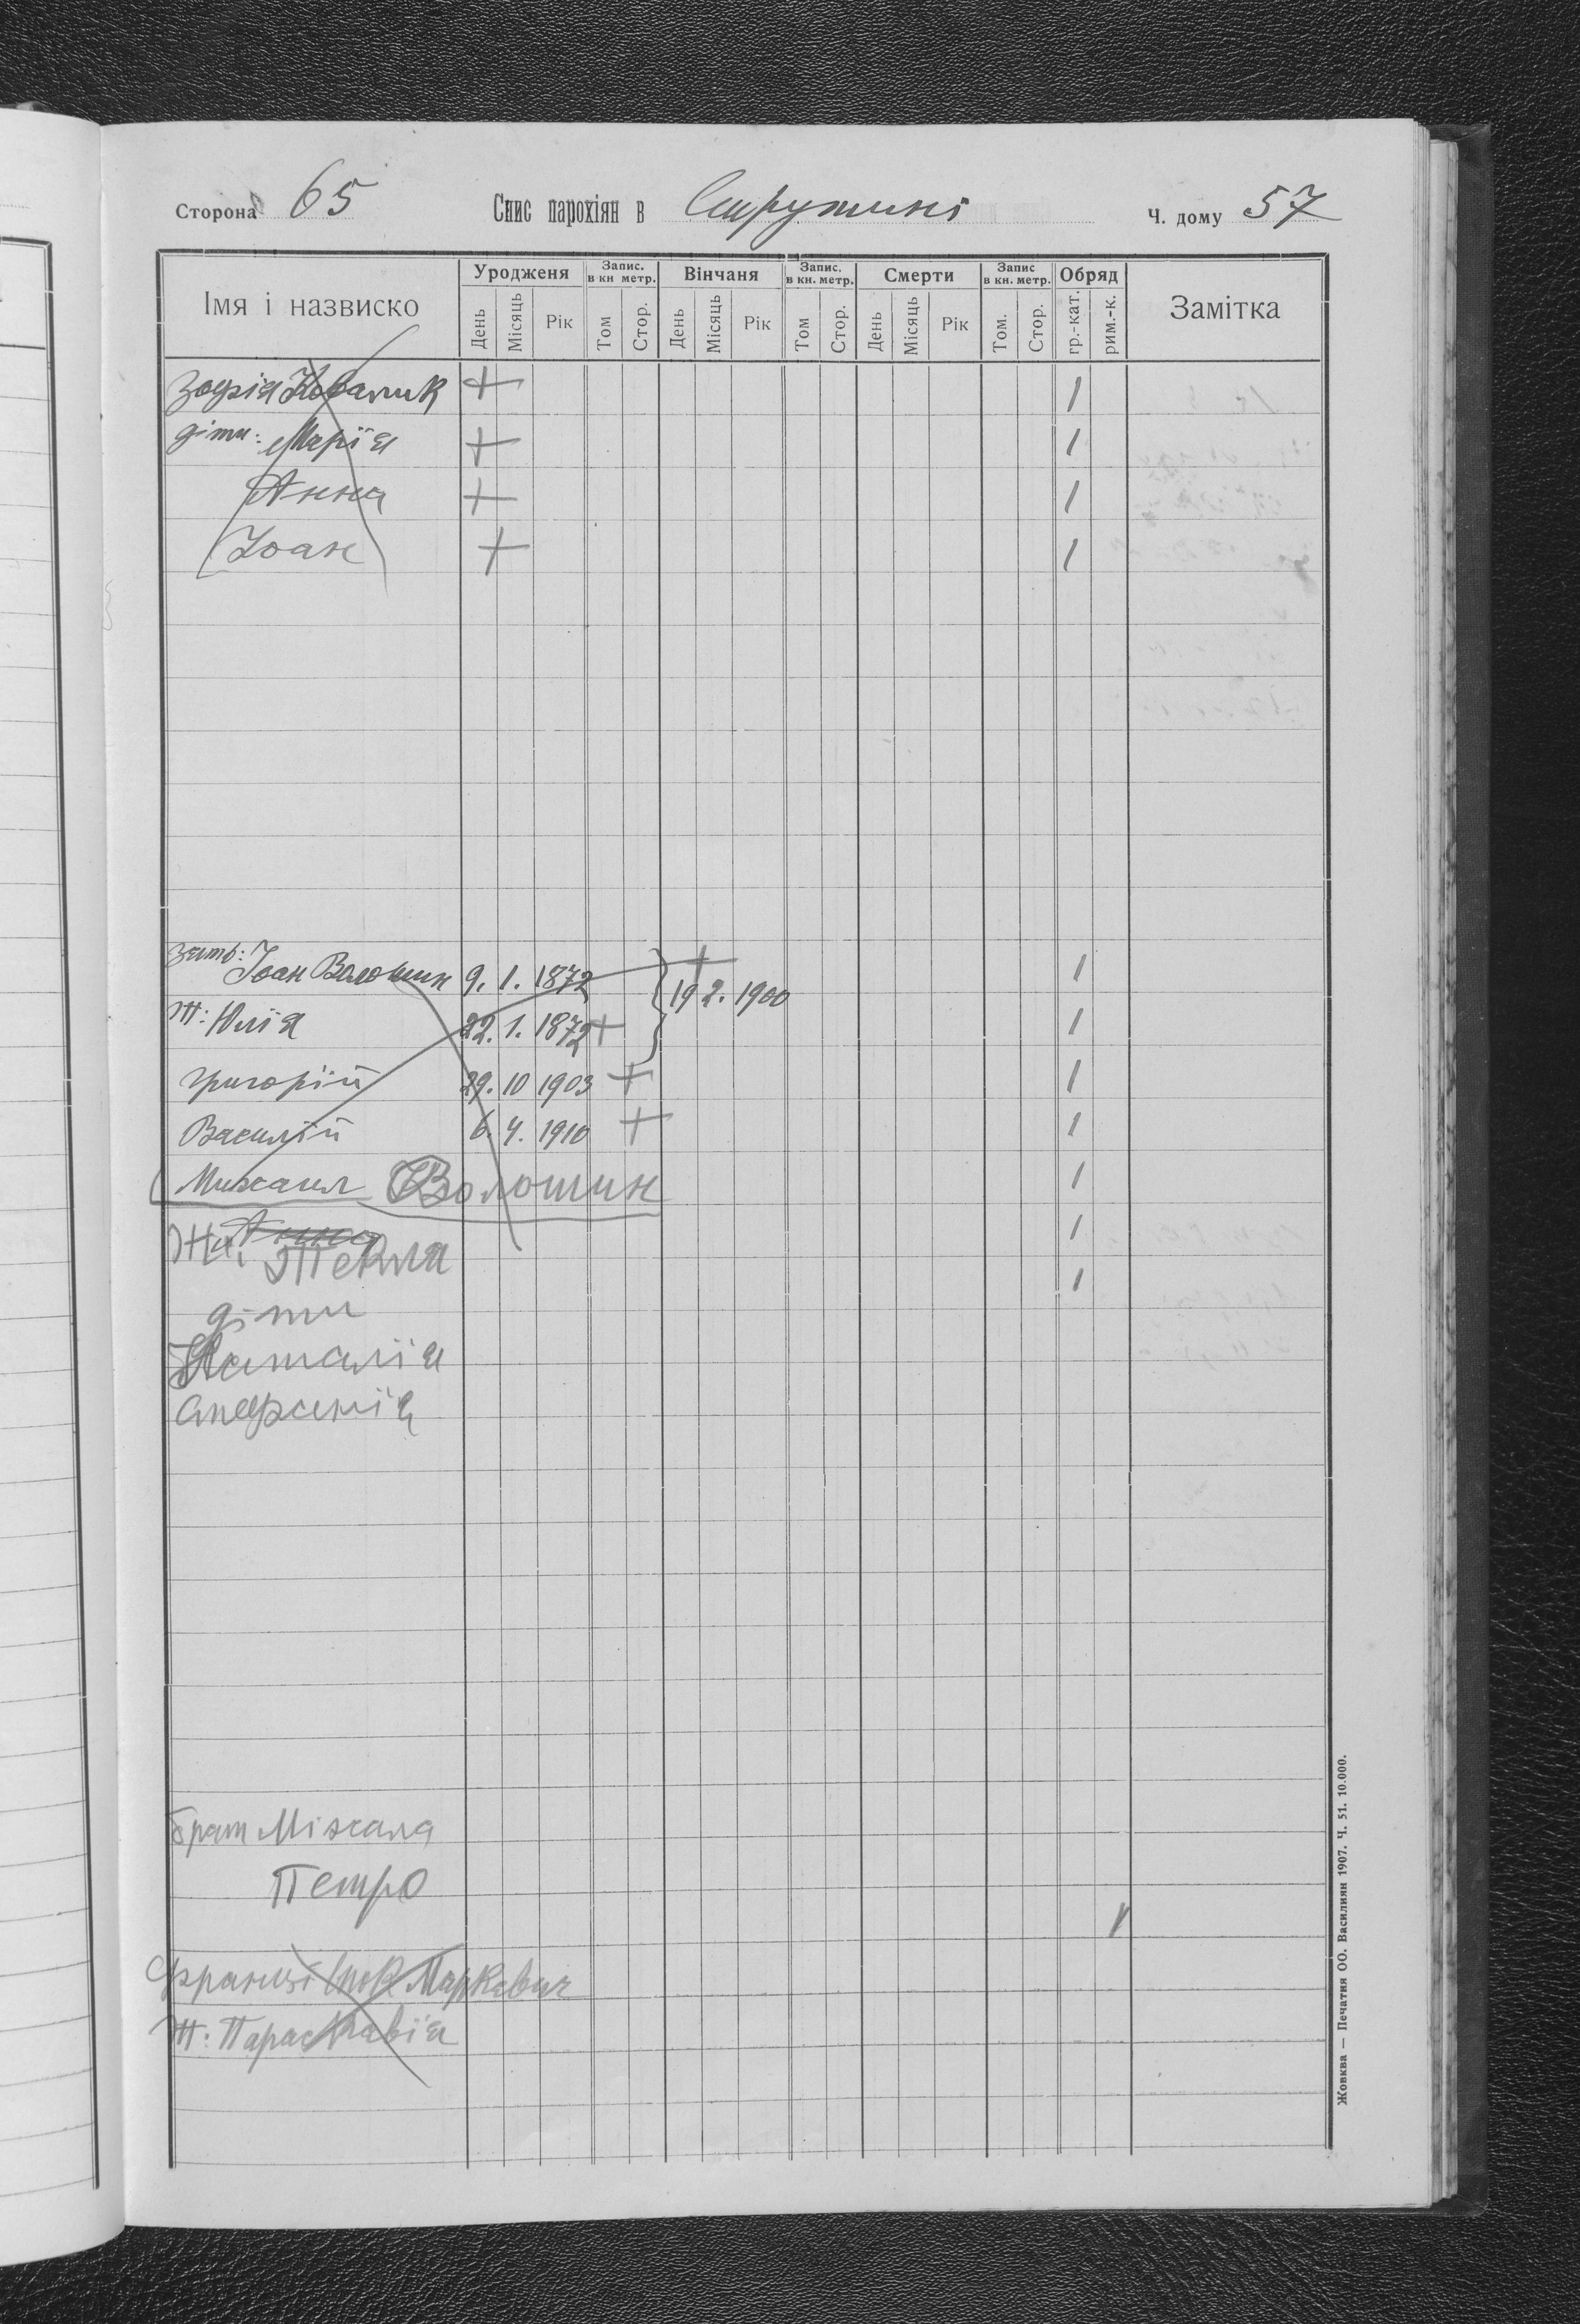 Сторона 65 Спис парохіян в Струтині Ч. дому 57
Імя і назвиско Уродженя Запис. в кн метр. Вінчаня Запис. в кн. метр. Смерти Запис в кн. метр. Обряд Замітка
День Місяць Рік Том Стор. День Місяць Рік Том Стор. День Місяць Рік Том. Стор. гр.-кат. рим.-к.
Зофія Ковалик + 1
діти: Марія + 1
Анна + 1
Іоан + 1
зять: Іоан Волошин 9. 1. 1872 + 1
19 2. 1900
Ж: Юлія 22. 1. 1872 + 1
Григорій 29. 10 1903 + 1
Василій 6. 4. 1910 + 1
Михаил Волошин 1
Анна 1
Ж. Текля 1
діти
Наталія
Стефанія
брат Міхала
Петро
1
Маркевич
Ж: Параскавія
Жовква — Печатня ОО. Василиян 1907. Ч. 51. 10.000.